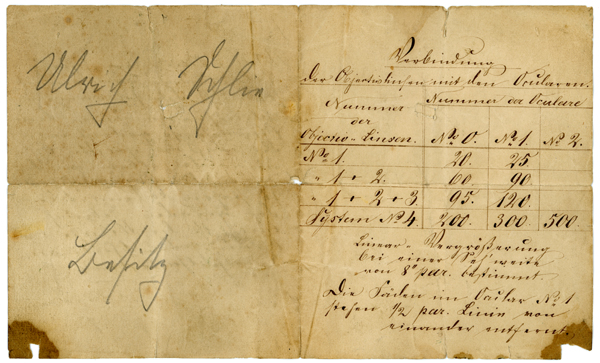 Ulrich Schlie
Besitz
Verbindung
der Objectivlinsen mit den Ocularen.
Nummer der Objectiv-Linsen. Nummer der Oculare
No 0. No 1. No 2.
No 1. 20. 25.
" 1 + 2. 60. 90.
" 1 + 2 + 3. 95. 120.
System No 4. 200. 300. 500.
Linear-Vergrößerung
bei einer Seh'weite
von 8" par. bestimmt.
Die Fäden im Ocular No 1
stehen 1/2 par. Linie von
einander entfernt.